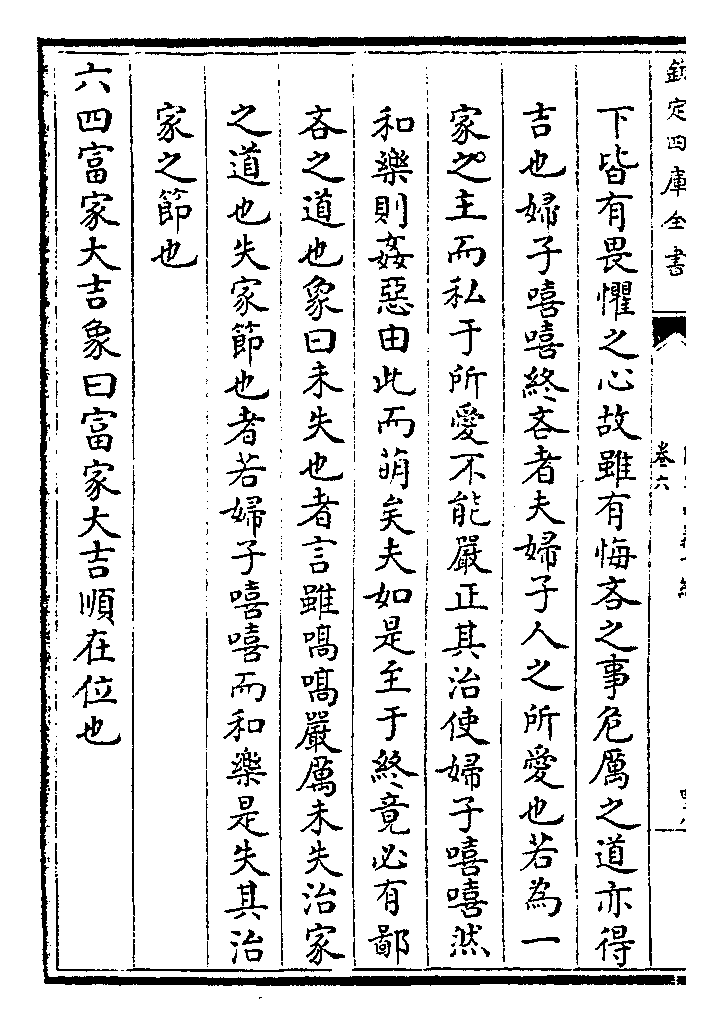 欽定四庫全書
卷六
下皆有畏懼之心故雖有悔吝之事危厲之道亦得
吉也婦子嘻嘻終吝者夫婦子人之所愛也若為一
家之主而私于所愛不能嚴正其治使婦子嘻嘻然
和樂則姦惡由此而萌矣夫如是至于終竟必有鄙
吝之道也象曰未失也者言雖嗃嗃嚴厲未失治家
之道也失家節也者若婦子嘻嘻而和樂是失其治
家之節也
六四富家大吉象曰富家大吉順在位也